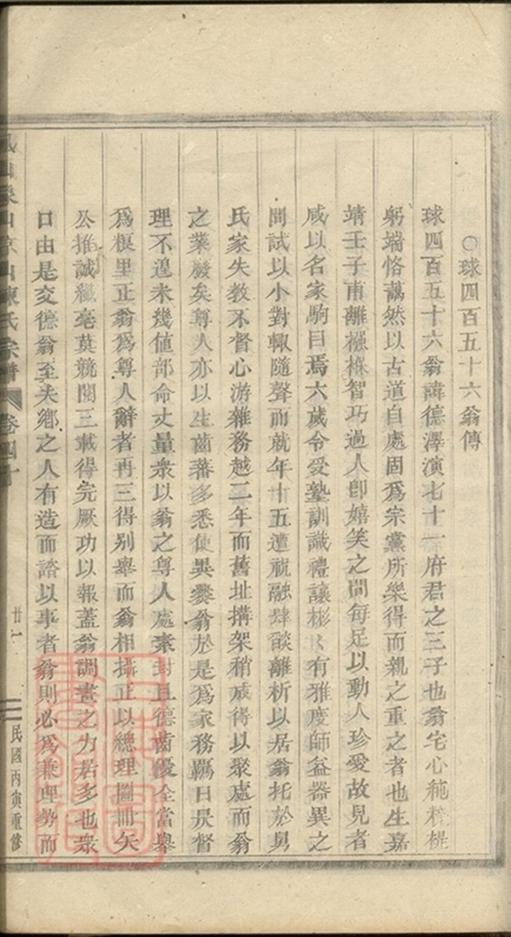 ○球四百五十六翁傳
球四百五十六翁諱德澤演七十一府君之三子也翁宅心純樸褆
躬端恪藹然以古道自處固為宗黨所樂得而親之重之者也生嘉
靖壬子甫離襁褓智巧過人卽嬉笑之間每足以動人珍愛故見者
咸以名家駒目焉六歲令受塾訓識禮讓彬彬有雅度師益器異之
間試以小對輒隨聲而就年十五遭祝融肆燄離析以居翁托於舅
氏家失敎不督心游雜務越二年而舊址搆架稍成得以聚處而翁
之業廢矣尊人亦以生齒蕃多悉使異爨翁於是為家務羈日昃督
理不遑未幾値部命丈量衆以翁之尊人處素封且德齒優全當舉
為樶里正翁為尊人辭者再三得别舉而翁相攝正以總理圖冊矢
公推誠纖毫莫競閱三載得完厥功以報蓋翁調畫之力居多也衆
口由是交德翁至夫鄉之人有造而諮以事者翁則必為兼理勢而
山陳氏宗譜
卷四十
廿一
民國丙寅重修